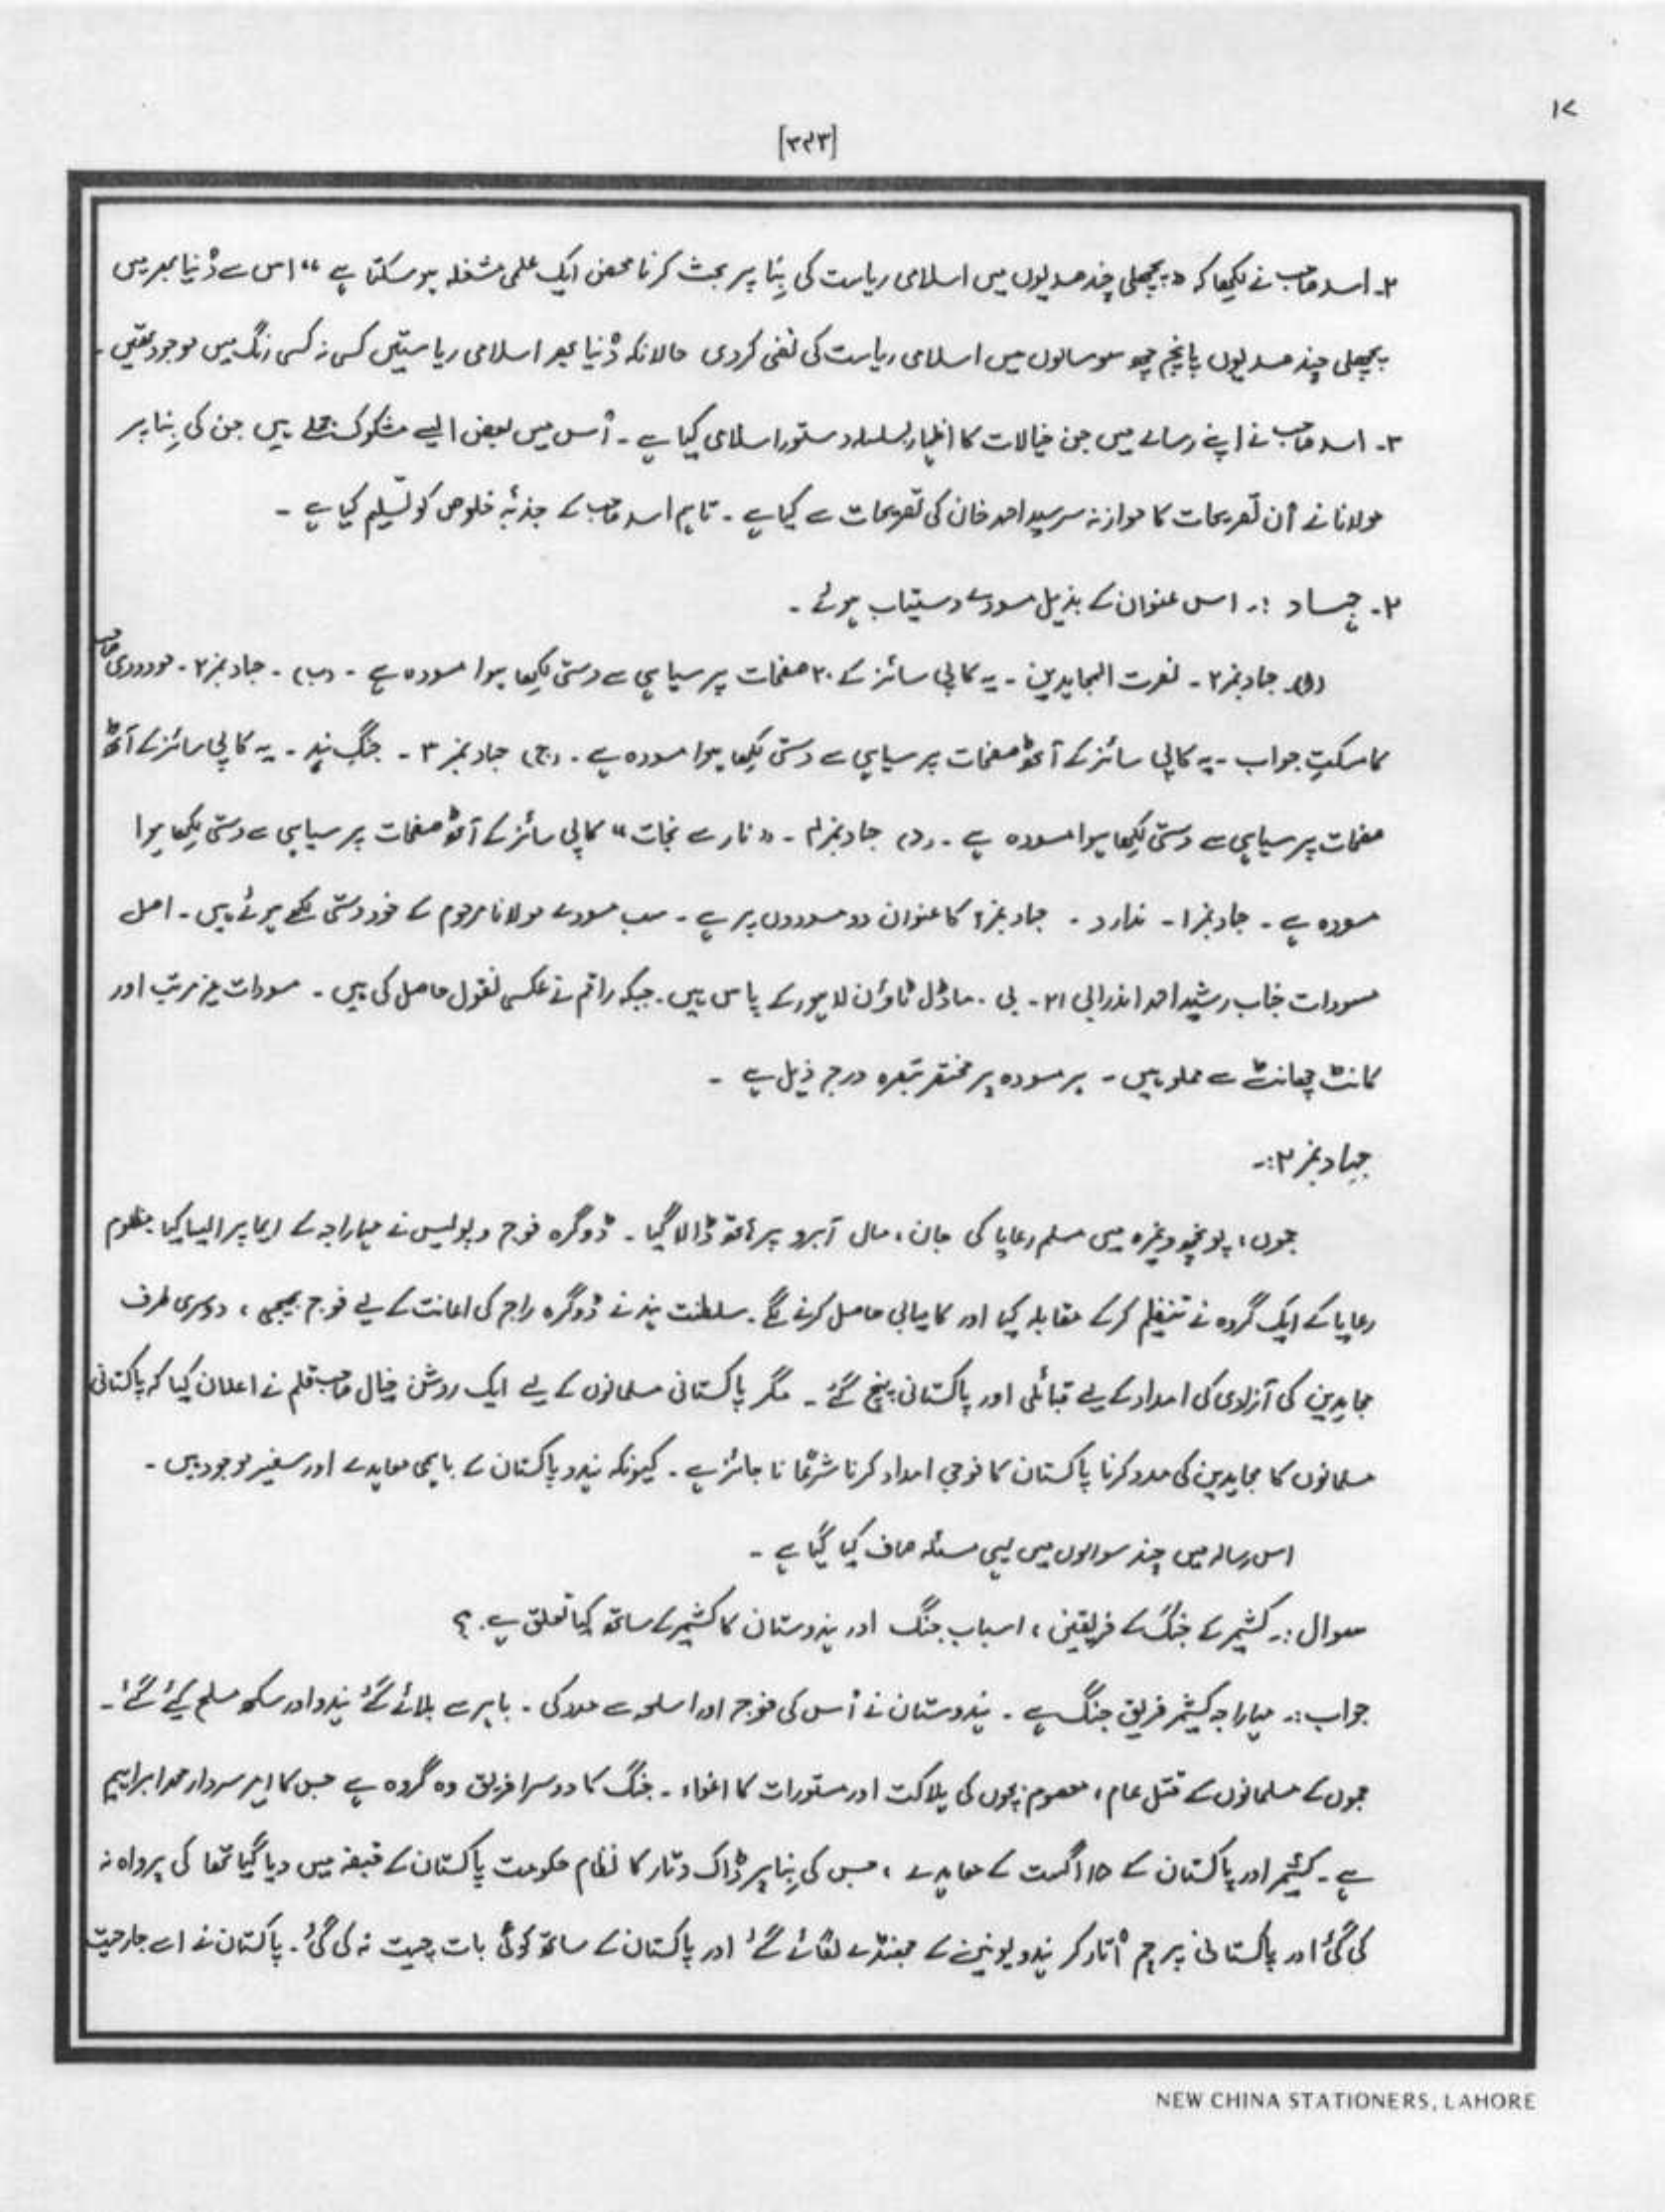 ۱۷
[۳۹۳]
۲۔ اسد صاحب نے لکھا کہ "پچھلی چند صدیوں میں اسلامی ریاست کی بِنا پر بحث کرنا محض ایک علمی مشغلہ ہو سکتا ہے" اس سے دُنیا بھر میں
پچھلی چند صدیوں پانچ چھ سو سالوں میں اسلامی ریاست کی نفی کردی حالانکہ دُنیا بھر اسلامی ریاستیں کسی نہ کسی رنگ میں موجود تھیں۔
۳۔ اسد صاحب نے اپنے رسالے میں جن خیالات کا اظہار بسلسلہ دستور اسلامی کیا ہے۔ اُس میں بعض ایسے مشکوک جملے ہیں جن کی بِنا پر
مولانا نے اُن تصریحات کا موازنہ سرسید احمد خان کی تصریحات سے کیا ہے۔ تاہم اسد صاحب کے جذبۂ خلوص کو تسلیم کیا ہے۔
۲۔ جہاد :۔ اس عنوان کے بذیل مسودے دستیاب ہوئے۔
(ا)۔ جہاد نمبر ۲۔ نصرت المجاہدین۔ یہ کاپی سائز کے ۲۰ صفحات پر سیاہی سے دستی لکھا ہوا مسودہ ہے۔ (ب)۔ جہاد نمبر ۲۔ مودودی صاحب
کا سکت جواب۔ یہ کاپی سائز کے آٹھ صفحات پر سیاہی سے دستی لکھا ہوا مسودہ ہے۔ (ج) جہاد نمبر ۳۔ جنگ ہند۔ یہ کاپی سائز کے آٹھ
صفحات پر سیاہی سے دستی لکھا ہوا مسودہ ہے۔ (د) جہاد نمبر ۴۔ "نار سے نجات" کاپی سائز کے آٹھ صفحات پر سیاہی سے دستی لکھا ہوا
مسودہ ہے۔ جہاد نمبر ۱۔ ندارد۔ جہاد نمبر ۲ کا عنوان دو مسودوں پر ہے۔ سب مسودے مولانا مرحوم کے خود دستی لکھے ہوئے ہیں۔ اصل
مسودات جناب رشید احمد اندرابی ۲۱۔ بی۔ ماڈل ٹاؤن لاہور کے پاس ہیں۔ جبکہ راقم نے عکسی نقول حاصل کی ہیں۔ مسودات غیر مرتب اور
کانٹ چھانٹ سے مملو ہیں۔ ہر مسودہ پر مختصر تبصرہ درج ذیل ہے۔
جہاد نمبر ۲:۔
جموں، پونچھ وغیرہ میں مسلم رعایا کی جان، مال آبرو پر ہاتھ ڈالا گیا۔ ڈوگرہ فوج و پولیس نے مہاراجہ کے ایما پر ایسا کیا۔ مظلوم
رعایا کے ایک گروہ نے تنظیم کرکے مقابلہ کیا اور کامیابی حاصل کرنے لگے۔ سلطنت ہند نے ڈوگرہ راج کی اعانت کے لیے فوج بھیجی، دوسری طرف
مجاہدین کی آزادی کی امداد کے لیے قبائلی اور پاکستانی پہنچ گئے۔ مگر پاکستانی مسلمانوں کے لیے ایک روشن خیال صاحب قلم نے اعلان کیا کہ پاکستانی
مسلمانوں کا مجاہدین کی مدد کرنا پاکستان کا فوجی امداد کرنا شرعًا نا جائز ہے۔ کیونکہ ہند و پاکستان کے باہمی معاہدے اور سفیر موجود ہیں۔
اس رسالہ میں چند سوالوں میں یہی مسئلہ صاف کیا گیا ہے۔
سوال :۔ کشمیر کے جنگ کے فریقین، اسباب جنگ اور ہندوستان کا کشمیر کے ساتھ کیا تعلق ہے۔؟
جواب :۔ مہاراجہ کشمیر فریق جنگ ہے۔ ہندوستان نے اُس کی فوج اور اسلحہ سے مدد کی۔ باہر سے بلائے گئے ہندو اور سکھ مسلح کیے گئے۔
جموں کے مسلمانوں کے قتل عام، معصوم بچوں کی ہلاکت اور مستورات کا اغواء۔ جنگ کا دوسرا فریق وہ گروہ ہے جس کا امیر سردار محمد ابراہیم
ہے۔ کشمیر اور پاکستان کے ۱۵ اگست کے معاہدے، جس کی بِنا پر ڈاک و تار کا نظام حکومت پاکستان کے قبضہ میں دیا گیا تھا کی پرواہ نہ
کی گئی اور پاکستانی پرچم اُتار کر ہندو یونین کے جھنڈے لگائے گئے اور پاکستان کے ساتھ کوئی بات چیت نہ کی گئی۔ پاکستان نے اسے جارحیت
NEW CHINA STATIONERS, LAHORE